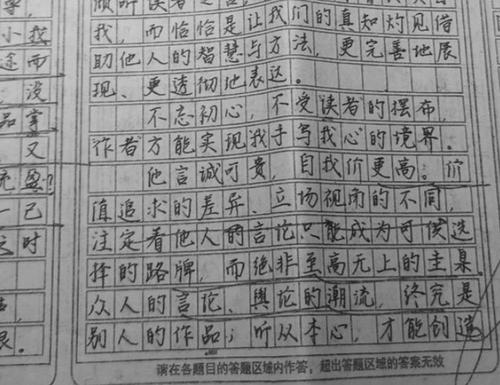 倾听读者之言
我，而恰恰是让我们的真知灼见借
助他人的智慧与方法，更完善地展
现、更透彻地表达。
不忘初心，不受读者的摆布，
作者方能实现我手写我心的境界。
他言诚可贵，自我价更高。价
值追求的差异、立场视角的不同，
注定着他人的言论只能成为可供选
择的路牌，而绝非至高无上的圭臬。
众人的言论、舆论的潮流，终究是
别人的作品；听从本心，才能创造
请在各题目的答题区域内作答，超出答题区域的答案无效
小我
途而
没
品掌
又
充盈？
一己
之时